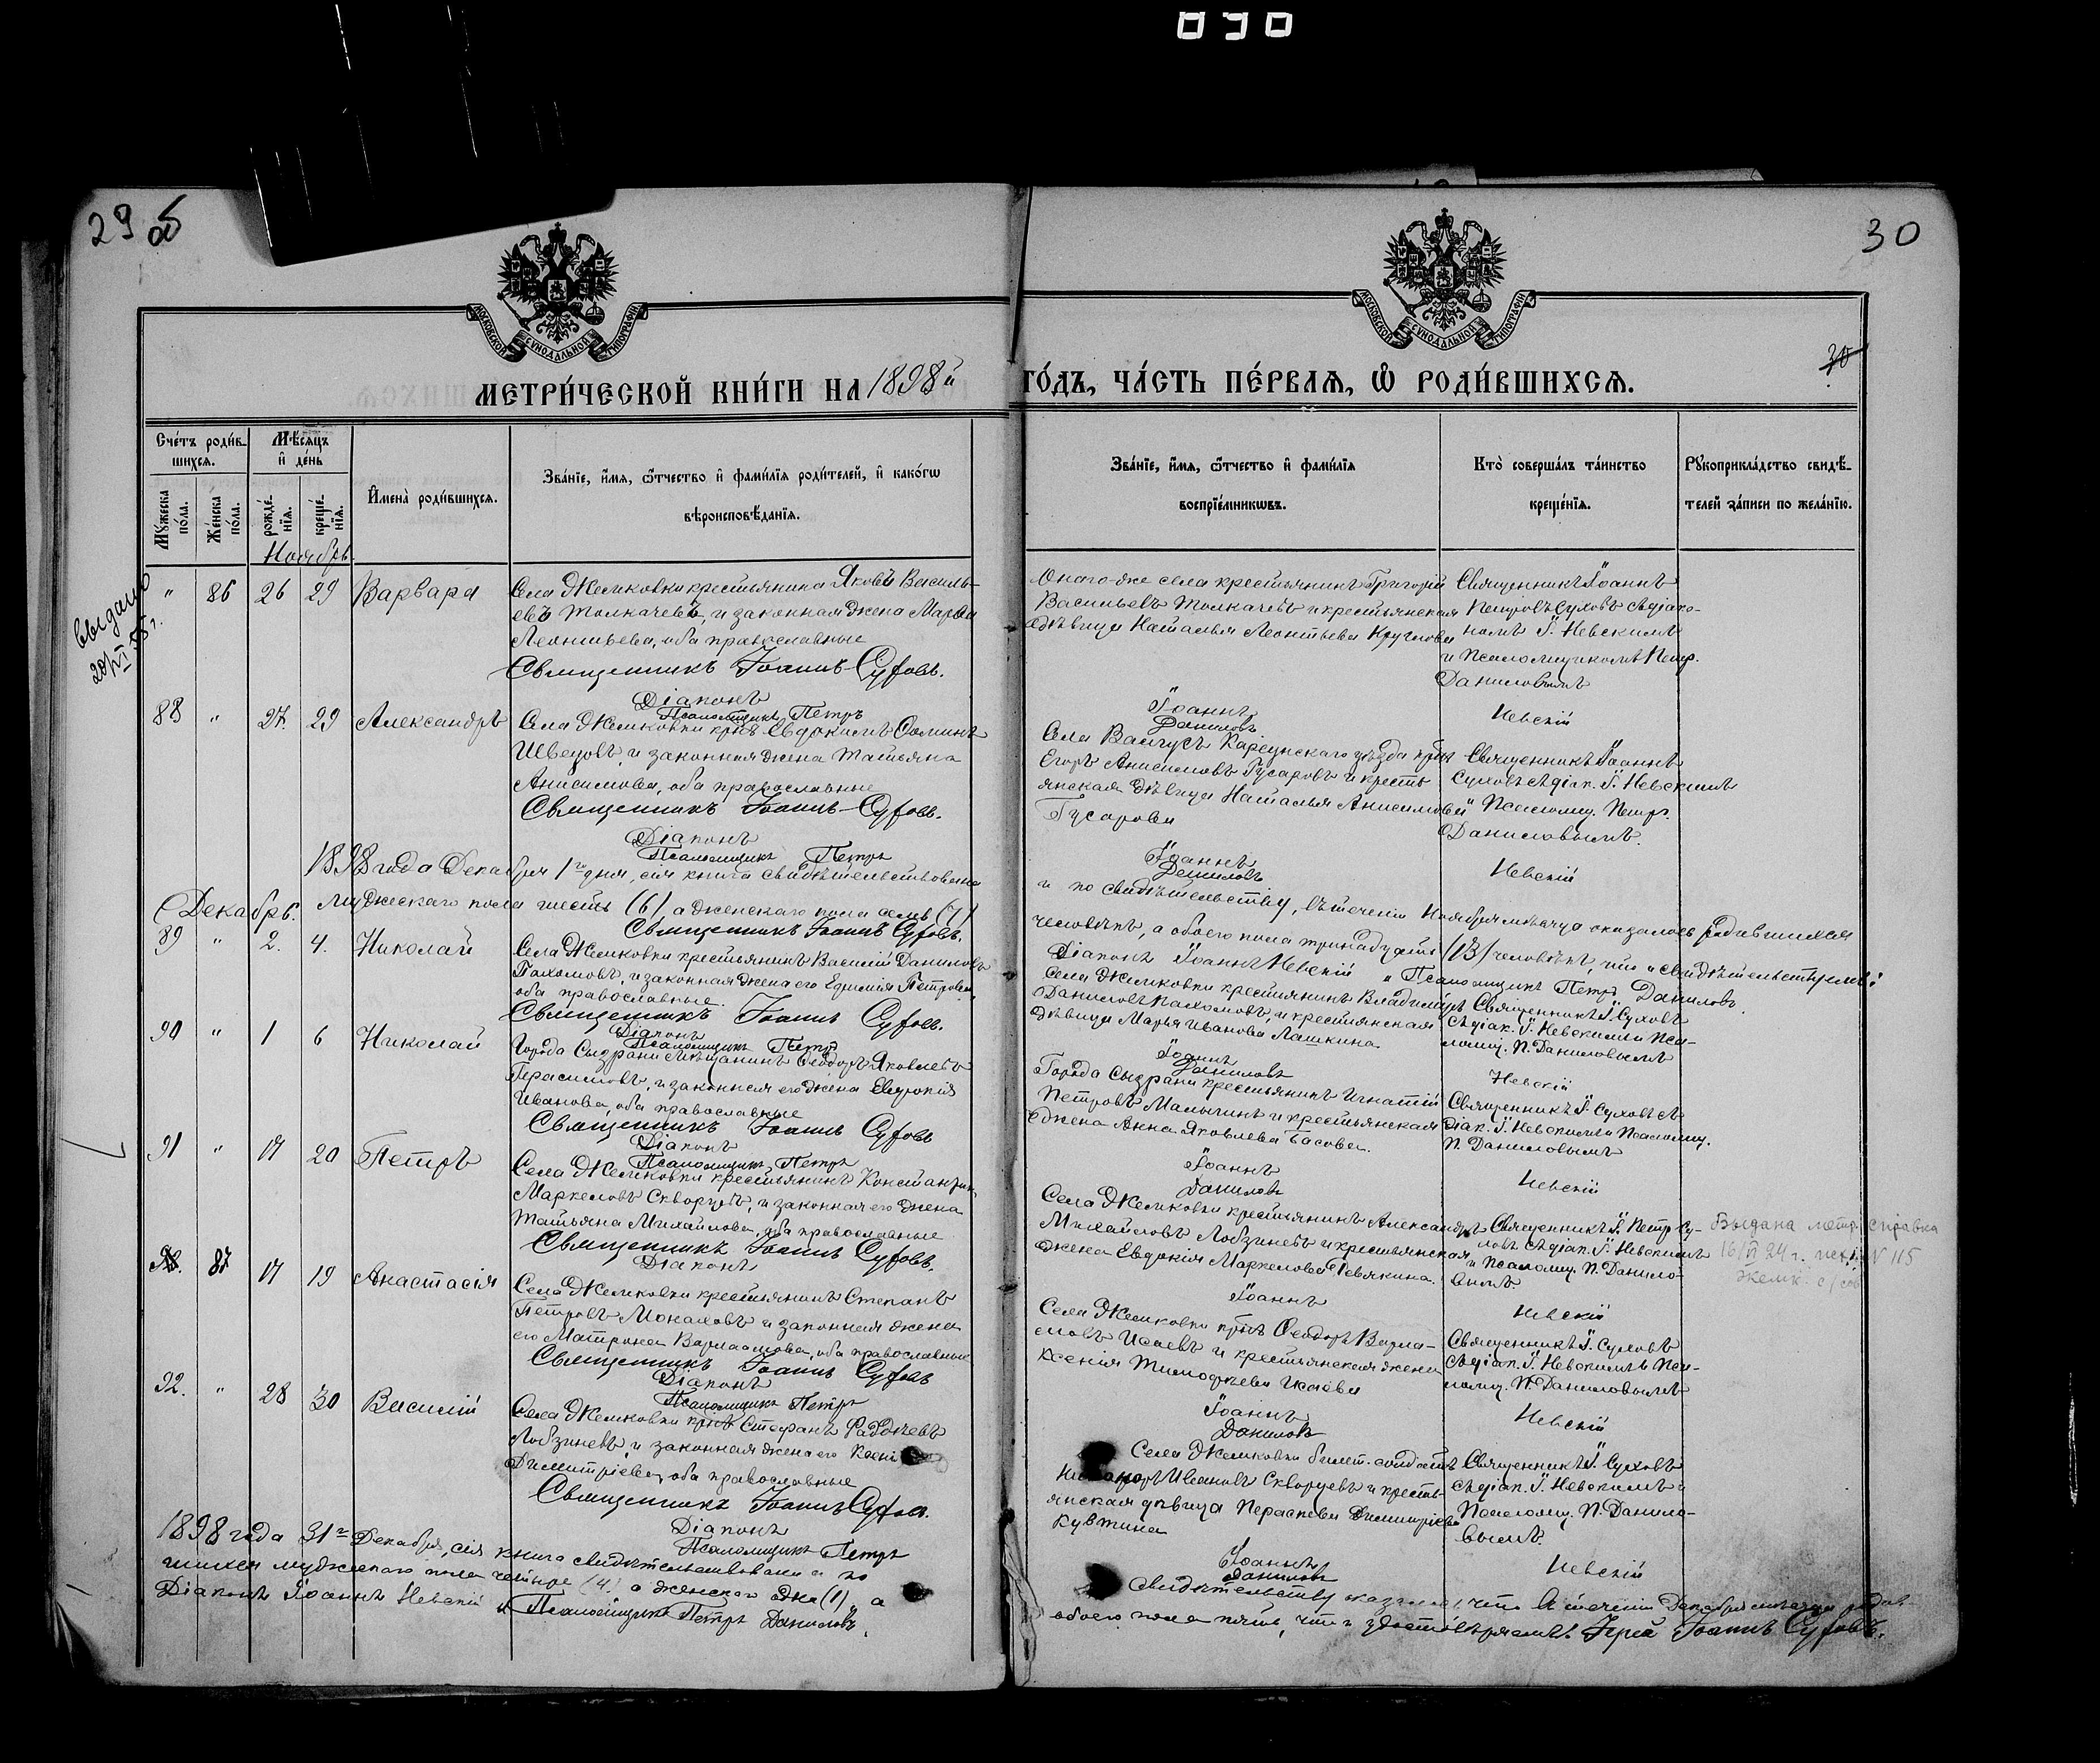 030
29 об
30
МОСКОВСКОЙ СѴНОДАЛЬНОЙ ТИПОГРАФІИ
МОСКОВСКОЙ СѴНОДАЛЬНОЙ ТИПОГРАФІИ
30
МЕТРИ́ЧЕСКОЙ КНИ́ГИ НА 1898й ГО́ДЪ, ЧА́СТЬ ПЕ́РВАѦ, Ѡ РОДИ́ВШИХСѦ.
Сче́тъ роди́вшихсѧ.
Мꙋ́жеска по́ла.
Же́нска по́ла.
Мѣ́сѧцъ и де́нь
рожде́нїѧ.
креще́нїѧ.
Имена̀ роди́вшихсѧ.
Зва́нїе, и́мѧ, ѻ́тчество и фами́лїѧ роди́телей, и како́гѡ
вѣроисповѣ́данїѧ.
Зва́нїе, и́мѧ, ѻ́тчество и фами́лїѧ
воспрїе́мникѡвъ.
Кто̀ соверша́лъ та́инство
креще́нїѧ.
Рꙋкоприкла́дство свидѣ́телей за́писи по жела́нїю.
Ноябрь
выдано
20/VI 55 г.
" 86 26 29 Варвара
Села Жемковки крестьянина Яковъ Василь-
евъ Толкачевъ, и законная жена Марѳа
Леонтьева, оба православные
Священникъ Іоаннъ Суховъ.
Діаконъ
Псаломщикъ Петръ
Онаго-же села крестьянинъ Григорій
Васильевъ Толкачевъ и крестьянская
дѣвица Наталья Леонтьева Круглова
Іоаннъ
Даниловъ
Священникъ Іоаннъ
Петровъ Суховъ съ діако-
номъ І. Невскимъ
и Псаломщикомъ Петр.
Даниловымъ
Невскій
88 " 27. 29 Александръ
Села Жемковки крнъ Евдокимъ Ѳоминъ
Швецовъ, и законная жена Татьяна
Анисимова, оба православные
Священникъ Іоаннъ Суховъ.
Діаконъ
Псаломщикъ Петръ
Села Валгусъ Карсунскаго уѣзда крнъ
Егоръ Анисимовъ Гусаровъ и кресть-
янская дѣвица Наталья Анисимова
Гусарова
Іоаннъ
Даниловъ
Священникъ Іоаннъ
Суховъ съ діак. І. Невскимъ
и Псаломщ. Петр.
Даниловымъ.
Невскій
1898 года Декабря 1го дня, сія книга свидѣтельствована
и по свидѣтельству, въ теченіи Ноября мѣсяца оказалось родившихся
мужескаго пола шесть (6) а женскаго пола семь (7)
человѣкъ, а обоего пола тринадцать (13) человѣкъ, что и свидѣтельствуемъ:
Священникъ Іоаннъ Суховъ.
Діаконъ Іоаннъ Невскій
Псаломщикъ Петръ Даниловъ.
Декабрь.
89 " 2. 4. Николай
Села Жемковки крестьянинъ Василій Даниловъ
Пахомовъ, и законная жена его Евфимія Петрова,
оба православные.
Священникъ Іоаннъ Суховъ.
Діаконъ
Псаломщикъ Петръ
Села Жемковки крестьянинъ Владиміръ
Даниловъ Пахомовъ, и крестьянская
дѣвица Марья Иванова Лашкина
Іоаннъ
Даниловъ
Священникъ І. Суховъ
съ діак. І. Невскимъ и Пса-
ломщ. П. Даниловымъ
Невскій
90 " 1 6 Николай
Города Сызрани мѣщанинъ Ѳеодоръ Яковлевъ
Герасимовъ, и законная его жена Евдокія
Иванова, оба православные
Священникъ Іоаннъ Суховъ
Діаконъ
Псаломщикъ Петръ
Города Сызрани крестьянинъ Игнатій
Петровъ Малыгинъ и крестьянская
жена Анна Яковлева Басова.
Іоаннъ
Даниловъ
Священникъ І. Суховъ съ
діак. І. Невскимъ и Псаломщ.
П. Даниловымъ
Невскій
91 " 17 20 Петръ
Села Жемковки крестьянинъ Константинъ
Маркеловъ Скворцовъ, и законная его жена
Татьяна Михайлова, оба православные
Священникъ Іоаннъ Суховъ.
Діаконъ
Села Жемковки крестьянинъ Александръ
Михайловъ Лобзиневъ и крестьянская
жена Евдокія Маркелова Ревякина.
Іоаннъ
Священникъ І. Петр. Су-
ховъ съ діак. І. Невскимъ
и Псаломщ. П. Данило-
вымъ.
Невскій
Выдана метр. справка
16/VI 24 г. № 115
Жемк. с/сов
87 17 19 Анастасія
Села Жемковки крестьянинъ Степанъ
Петровъ Монаховъ и законная жена
его Матрона Варлаамова, оба православные
Священникъ Іоаннъ Суховъ
Діаконъ
Псаломщикъ Петръ
Села Жемковки крнъ Ѳеодоръ Варла-
мовъ Исаевъ и крестьянская жена
Ксенія Тимофѣева Исаева
Іоаннъ
Даниловъ
Священникъ І. Суховъ
съ діак. І. Невскимъ и Пса-
ломщ. П. Даниловымъ
Невскій
92. " 28 30 Василій
Села Жемковки крнъ Стефанъ Фаддѣевъ
Лобзиневъ, и законная жена его Ксені
Димитріева, оба православные
Священникъ Іоаннъ Суховъ.
Діаконъ
Псаломщикъ Петръ
Села Жемковки билет. солдатъ
Никаноръ Ивановъ Скворцовъ и кресть-
янская дѣвица Параскева Димитріева
Кувтина
Іоаннъ
Даниловъ
Священникъ І. Суховъ
съ діак. І. Невскимъ и
Псаломщ. П. Данило-
вымъ.
Невскій
1898 года 31го Декабря, сія книга свидѣтельствована и по
свидѣтельству оказалось, что въ теченіи Декабря мѣсяца родив-
шихся мужескаго пола четыре (4) а женскаго одна (1), а
обоего пола пять, что и удостовѣряемъ. Іерей Іоаннъ Суховъ.
Діаконъ Іоаннъ Невскій и Псаломщикъ Петръ Даниловъ.